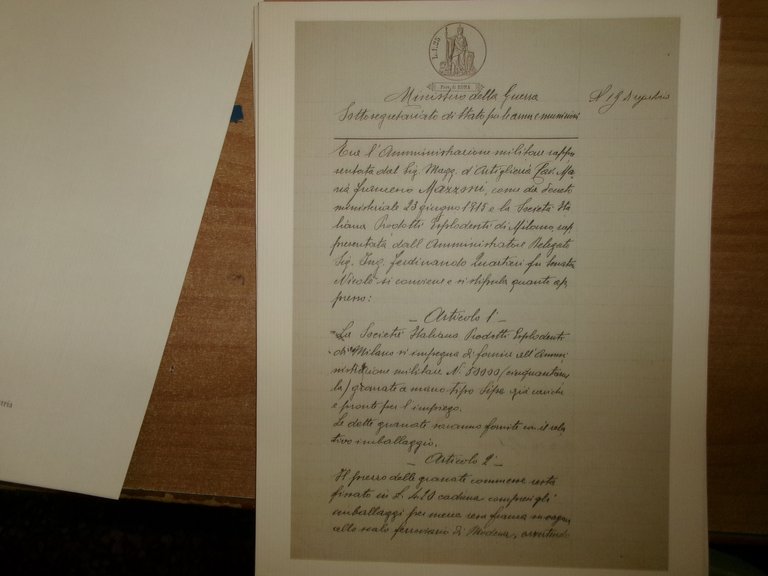 L. 1,05
Ministero della Guerra
N 19 Repertorio
Sottosegretariato di Stato per le armi e munizioni
Tra l'Amministrazione militare rappre
sentata dal Sig. Magg. d'Artiglieria Cav. Ma
Francesco Mazzoni, come da Decreto
ministeriale 23 giugno 1915 e la Società Ita
liana Prodotti Esplodenti di Milano, rap
presentata dall'Amministratore Delegato
Sig. Ing. Ferdinando Quartieri fu Senatore
Nicolò si conviene e si stipula quanto ap
presso:
— Articolo 1° —
La Società Italiana Prodotti Esplodenti
di Milano si impegna di fornire all'Ammi
nistrazione militare N. 50000 (cinquantami
la) granate a mano tipo Sipe già cariche
e pronte per l'impiego.
Le dette granate saranno fornite con il rela
tivo imballaggio.
— Articolo 2° —
Il prezzo delle granate commesse resta
fissato in L. cadauna compresi gli
imballaggi per merce resa franca in vagone
allo scalo ferroviario di Modena,
tria